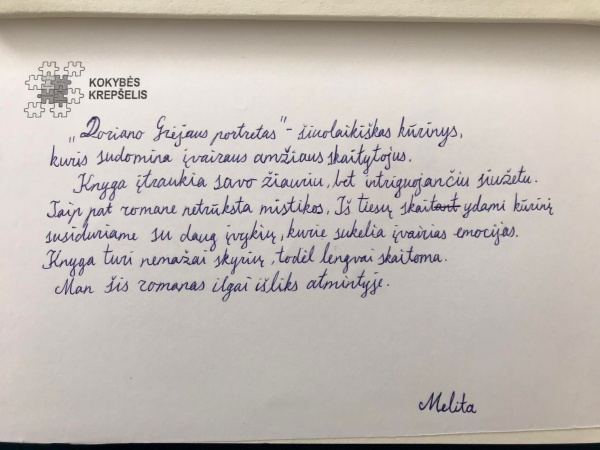 KOKYBĖS
KREPŠELIS
„Doriano Grėjaus portretas" - šiuolaikiškas kūrinys,
kuris sudomina įvairaus amžiaus skaitytojus.
Knyga įtraukia savo žiauriu, bet intriguojančiu siužetu.
Taip pat romane netrūksta mistikos. Iš tiesų skaitant ydami kūrinį
susiduriame su daug įvykių, kurie sukelia įvairias emocijas.
Knyga turi nemažai skyrių, todėl lengvai skaitoma.
Man šis romanas ilgai išliks atmintyje.
Melita